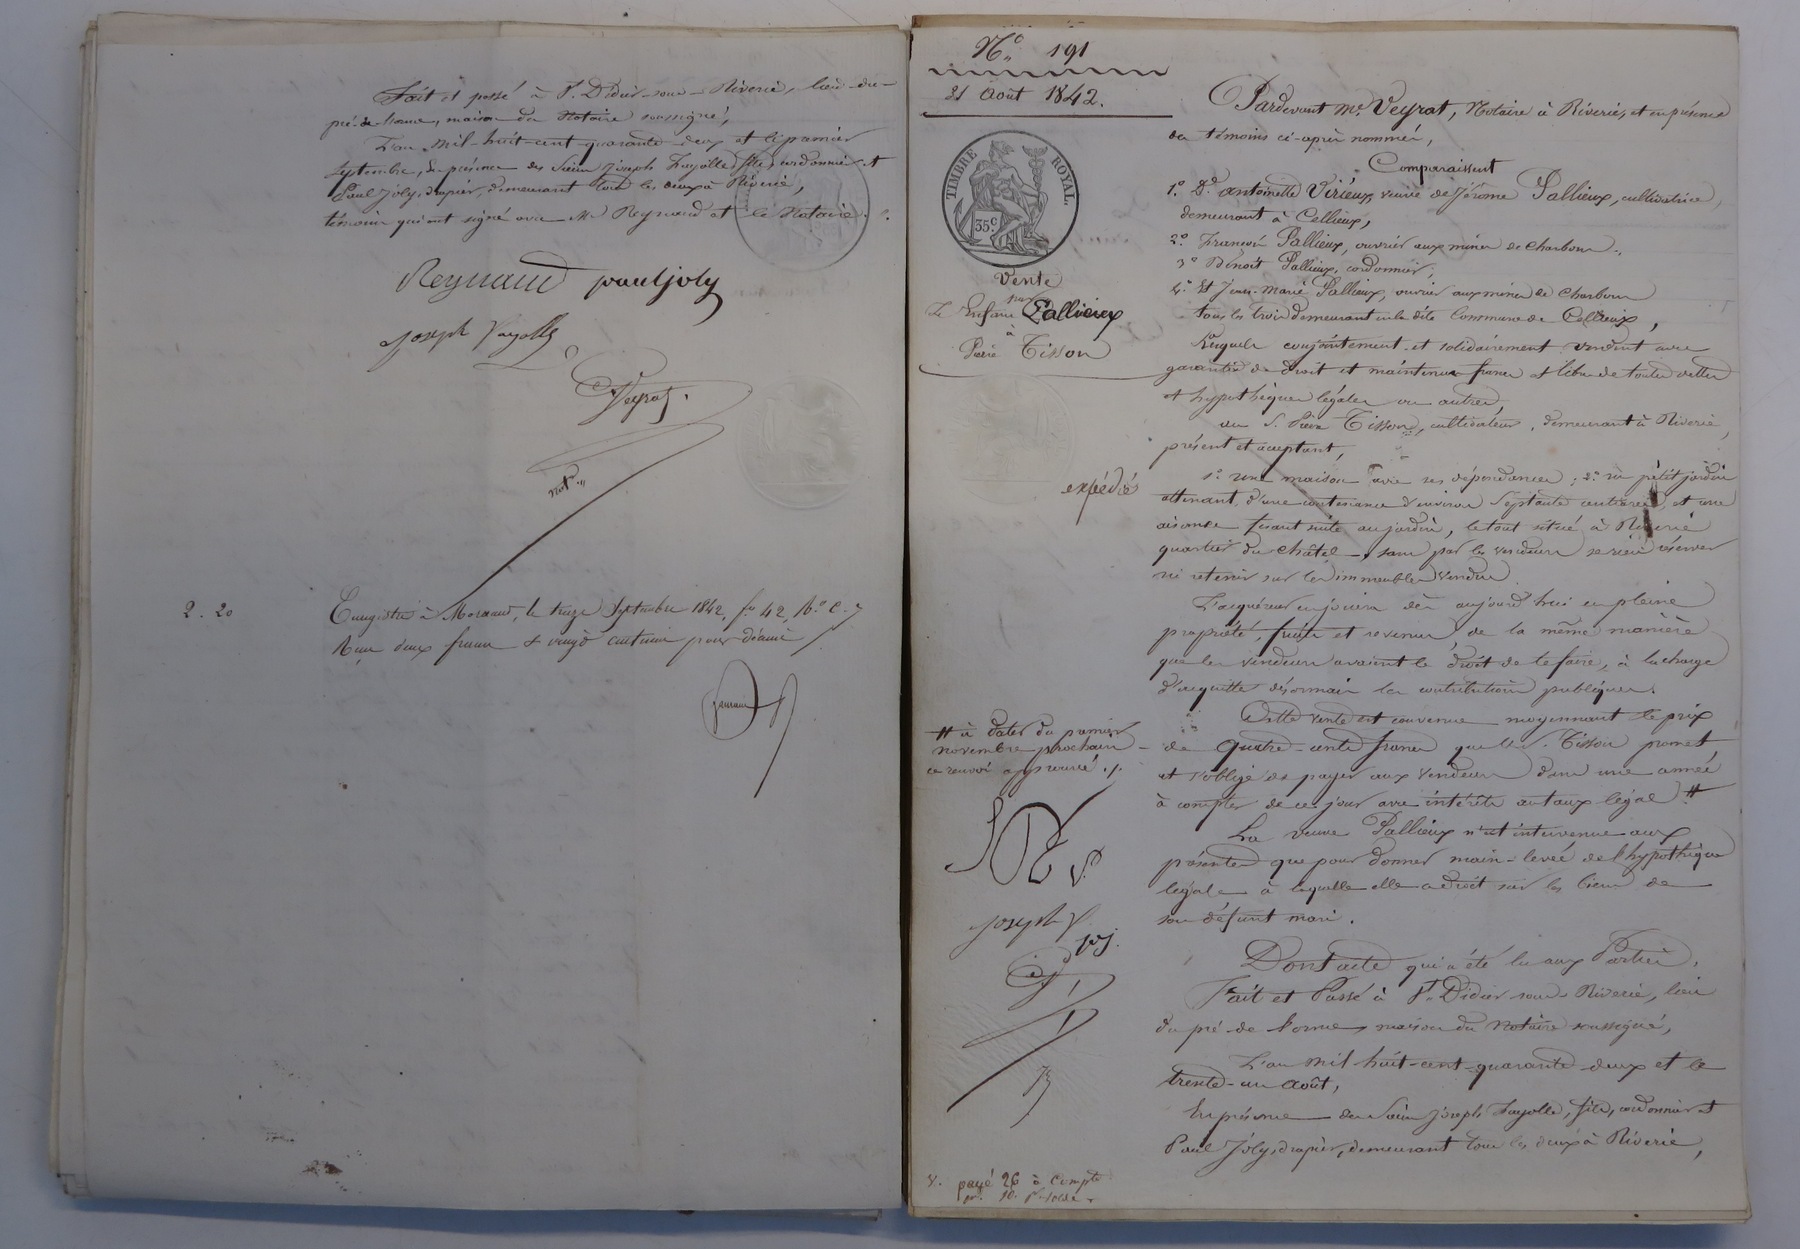 Fait et passé à St. Didier-sous-Riverie, lieu-du-
pré-de-    , maison du Notaire soussigné,
L'an mil-huit-cent-quarante-deux et le premier
septembre, en présence des Sieurs Joseph Fayolle, fils, cordonnier et
Paul Joly, drapier, demeurant tous les deux à Riverie,
témoins qui ont signé avec Me Reynaud et le Notaire.
Reynaud paul joly
joseph fayolle
Veyrat
not.re
2. 20
Enregistré à Mornant, le treize Septembre 1842, fo 42, Ro C. 7
Reçu deux francs & vingt centimes pour décime
No 191
31 Août 1842.
TIMBRE ROYAL.
35 C
Vente
par
Les Enfans Pallieux
à
Pierre Tisson
expédié
Pardevant Me. Veyrat, Notaire à Riverie, et en présence
des témoins ci-après nommés,
Comparaissent
1o De. Antoinette Virieux, veuve de Jérôme Pallieux, cultivatrice
demeurant à Cellieux,
2o François Pallieux, ouvrier aux mines de charbon,
3o Benoît Pallieux, cordonnier,
4o Et Jean-Marie Pallieux, ouvrier aux mines de charbon
tous les trois demeurant en la dite Commune de Cellieux,
Lesquels conjointement et solidairement vendent avec
garantie de droit et maintenue francs et libres de toutes dettes
et hypothèques légales ou autres,
au S. Pierre Tisson, cultivateur, demeurant à Riverie,
présent et acceptant,
1o une maison avec ses dépendances ; 2o un petit jardin
attenant, d'une contenance d'environ septante centiares, et une
aisance fesant suite au jardin, le tout situé à Riverie
quartier du châtel, sans par les vendeurs se rien réserver
ni retenir sur les immeubles vendus.
L'acquéreur en jouira dès aujourd'hui en pleine
propriété, fruits et revenus, de la même manière
que les vendeurs avaient le droit de le faire, à la charge
d'acquitter désormais les contributions publiques.
Cette vente est convenue moyennant le prix
de quatre-cents francs que le S. Tisson promet
et s'oblige de payer aux vendeurs dans une année
à compter de ce jour avec intérêts au taux légal #
# à dater du premier
novembre prochain
ce renvoi approuvé ./.
La veuve Pallieux n'est intervenue aux
présentes que pour donner main-levée de l'hypothèque
légale à laquelle elle a droit sur les biens de
son défunt mari.
joseph f
p j.
Dont acte qui a été lu aux Parties.
Fait et Passé à St. Didier-sous-Riverie, lieu
du pré-de-    , maison du Notaire soussigné,
L'an mil-huit-cent-quarante-deux et le
trente-un août,
En présence des Sieurs Joseph Fayolle, fils, cordonnier et
Paul Joly, drapier, demeurant tous les deux à Riverie,
payé 26 à Compte
10. pr. solde